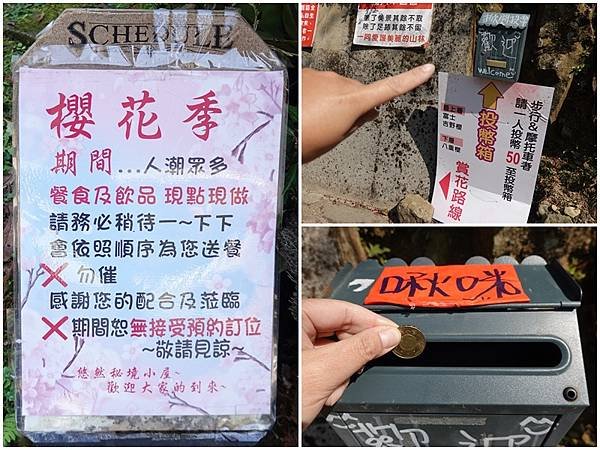 SCHEDULE
櫻花季
期間...人潮眾多
餐食及飲品 現點現做
請務必稍待一~下下
會依照順序為您送餐
❌ 勿催
感謝您的配合及蒞臨
❌期間恕無接受預約訂位
~敬請見諒~
悠然秘境小屋~
歡迎大家的到來~
除了倩景其餘不取
除了足跡其餘不留
一同愛護美麗的山林
歡迎
welcome
步行&摩托車者
請一人投幣50至投幣箱
投幣箱
最上層
富士
吉野櫻
下層
八重櫻
賞花路線
啾咪
歡迎